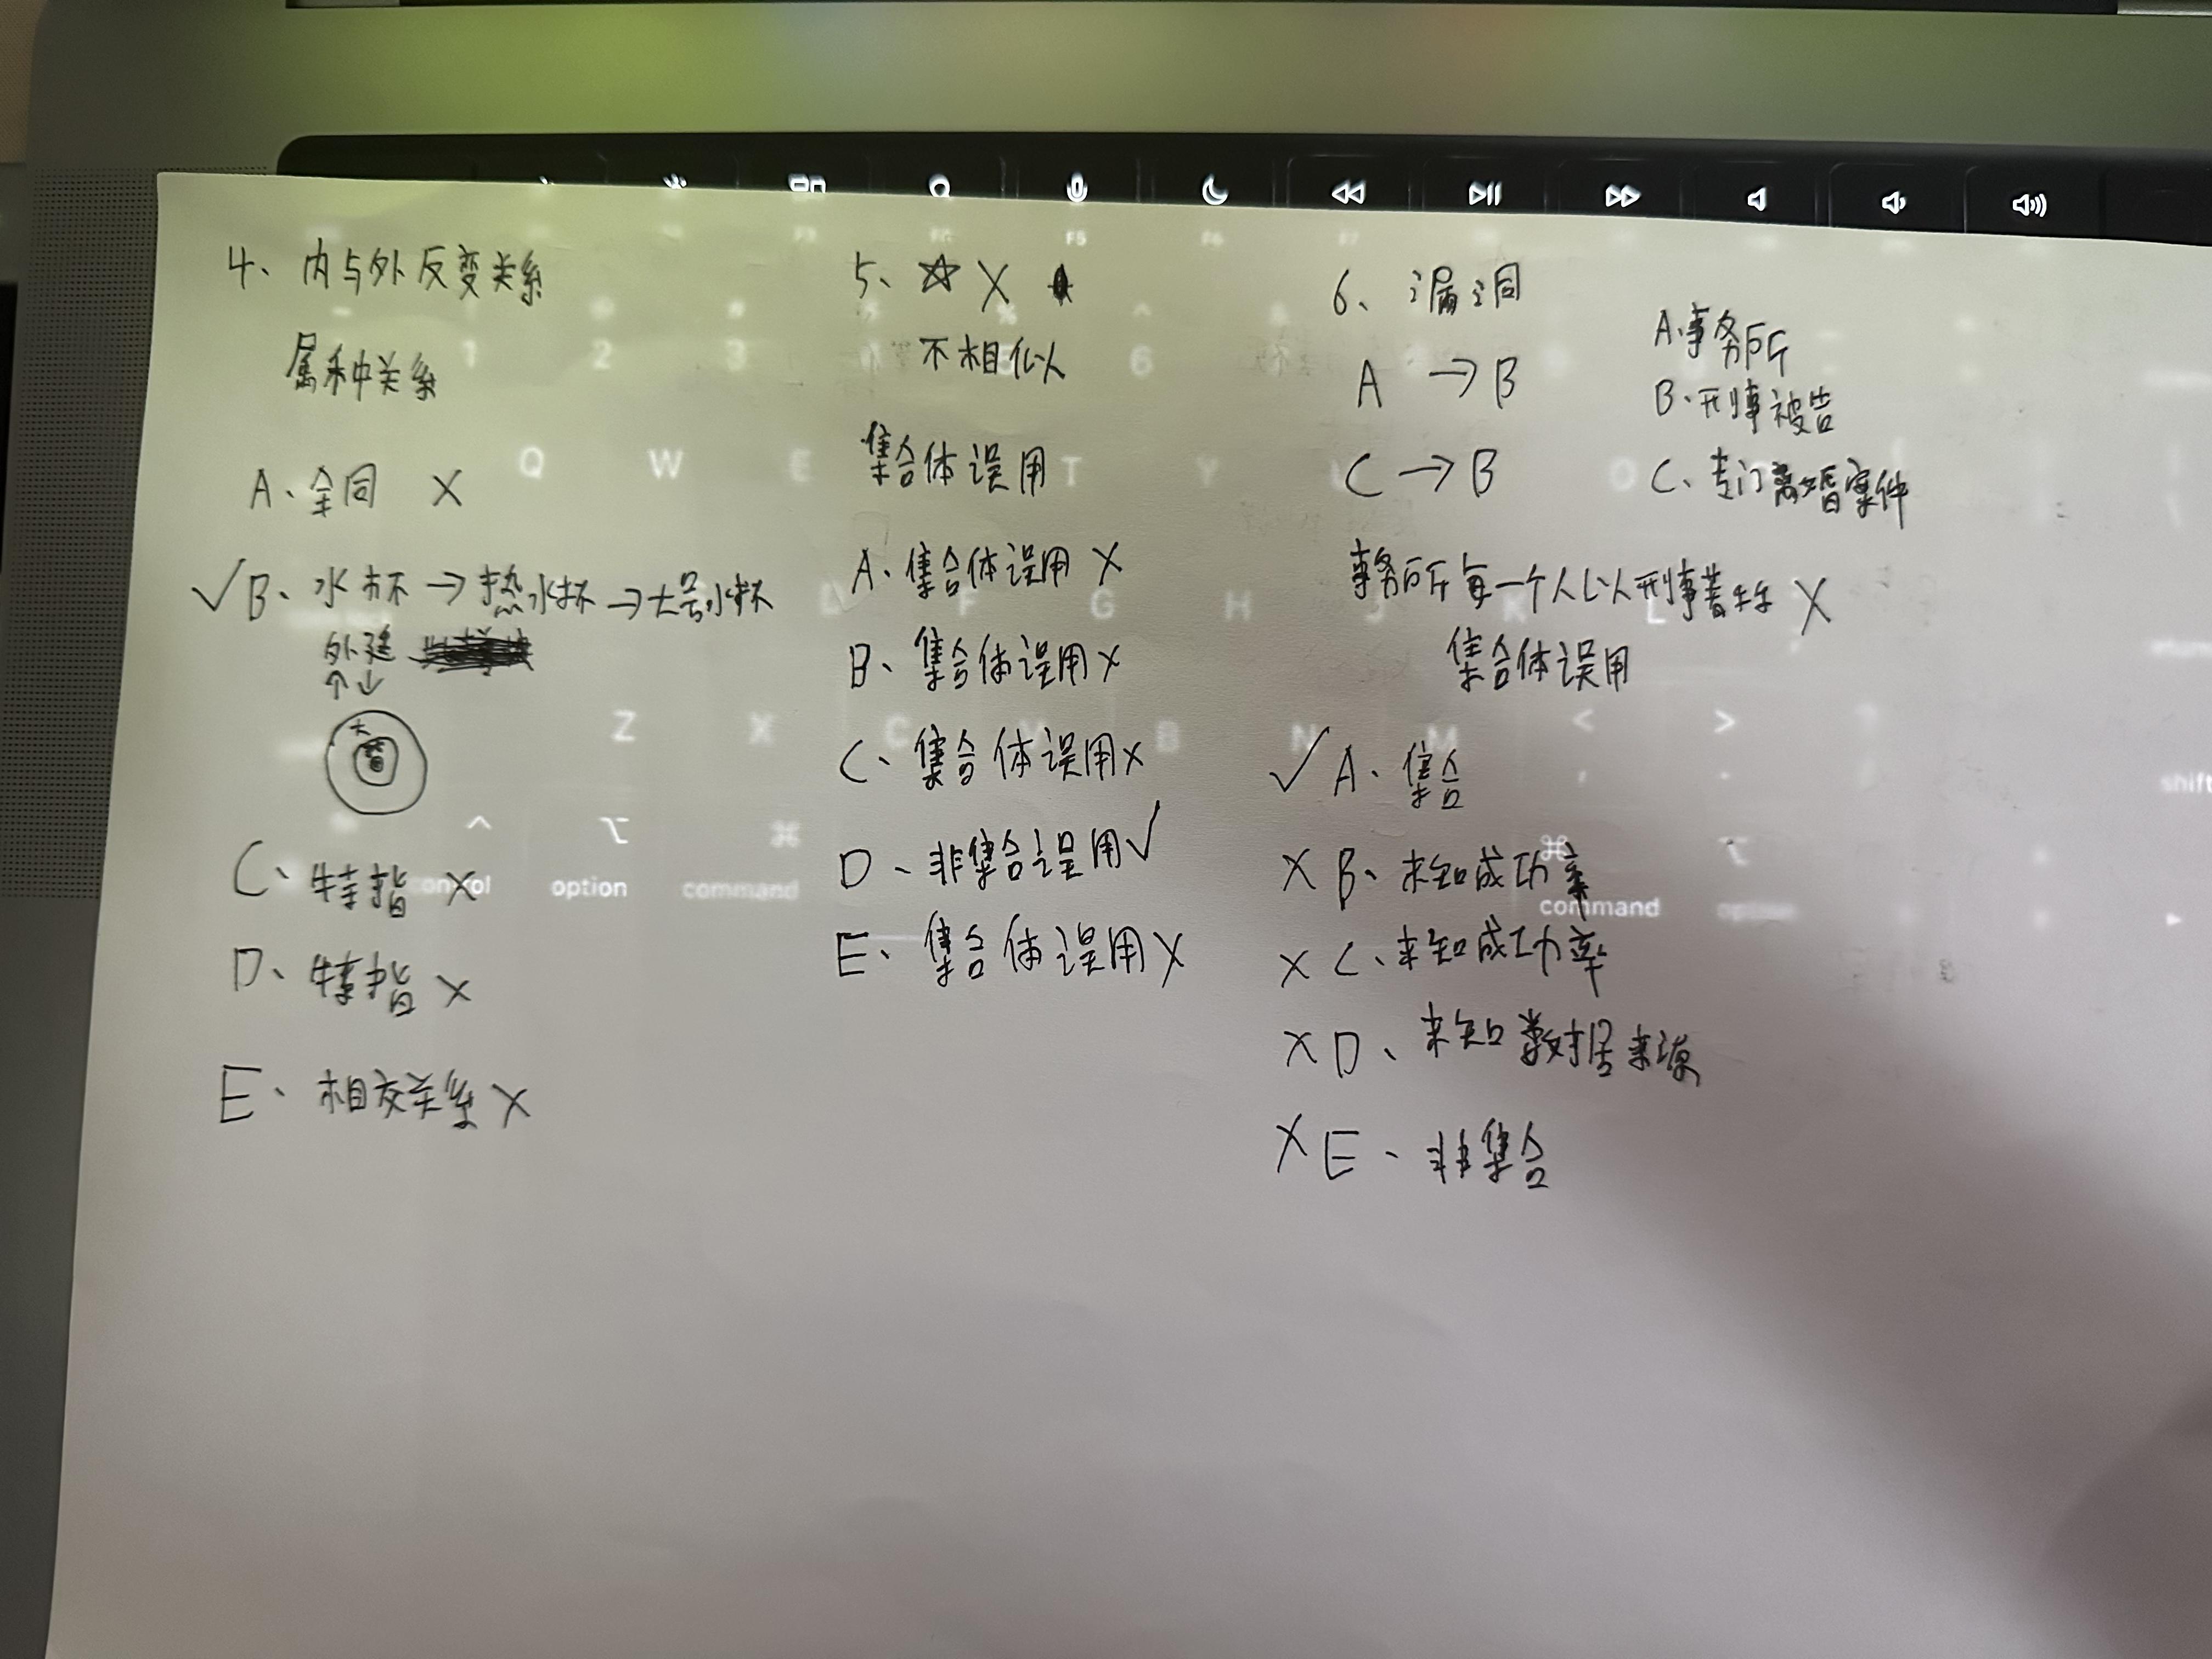 4、内与外反变关系
属种关系
A、全同 X
✓B、水杯→热水杯→大号水杯
外延
↑↓
大
C、特指 X
D、特指 X
E、相交关系 X
5、☆ X
不相似
集合体误用
A、集合体误用 X
B、集合体误用 X
C、集合体误用 X
D、非集合误用✓
E、集合体误用 X
6、漏洞
A→B
C→B
A.事务所
B.刑事被告
C、专门离婚案件
事务所每一个人以刑事著称 X
集合体误用
✓A、集合
X B、未知成功率
X C、未知成功率
X D、未知数据来源
X E、非集合
F5
1 2 3 6
Q W E T Y O
F G H J K L
Z X C B N M < >
control option command
command option
shift